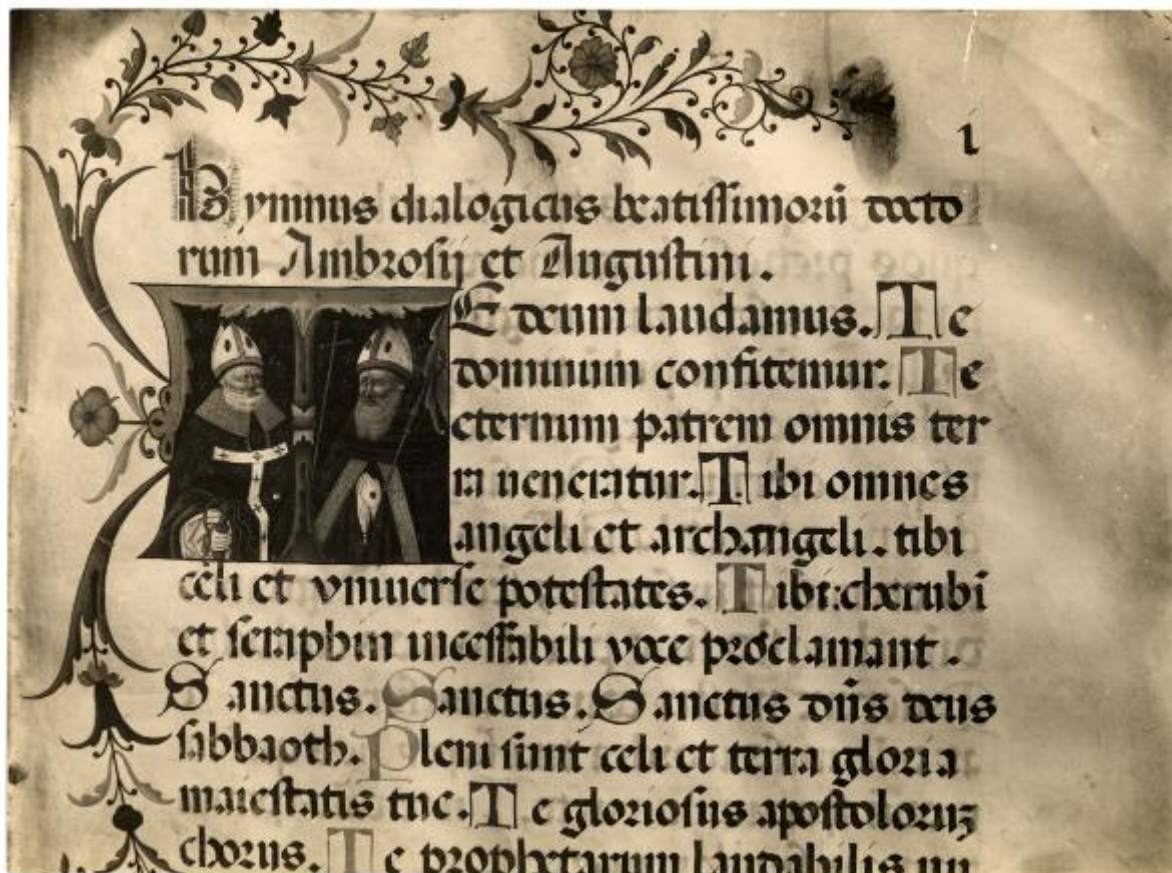 i
Hymnus dialogicus beatissimorũ docto
rum Ambrosij et Augustini.
TE deum laudamus. Te
dominum confitemur. Te
eternum patrem omnis ter
ra ueneratur. Tibi omnes
angeli et archangeli. tibi
celi et vniuerse potestates. Tibi: cherubĩ
et seraphin incessabili voce proclamant.
Sanctus. Sanctus. Sanctus dñs deus
sabbaoth. Pleni sunt celi et terra gloria
maiestatis tue. Te gloriosus apostoloruꝫ
chorus. Te prophetarum laudabilis nu